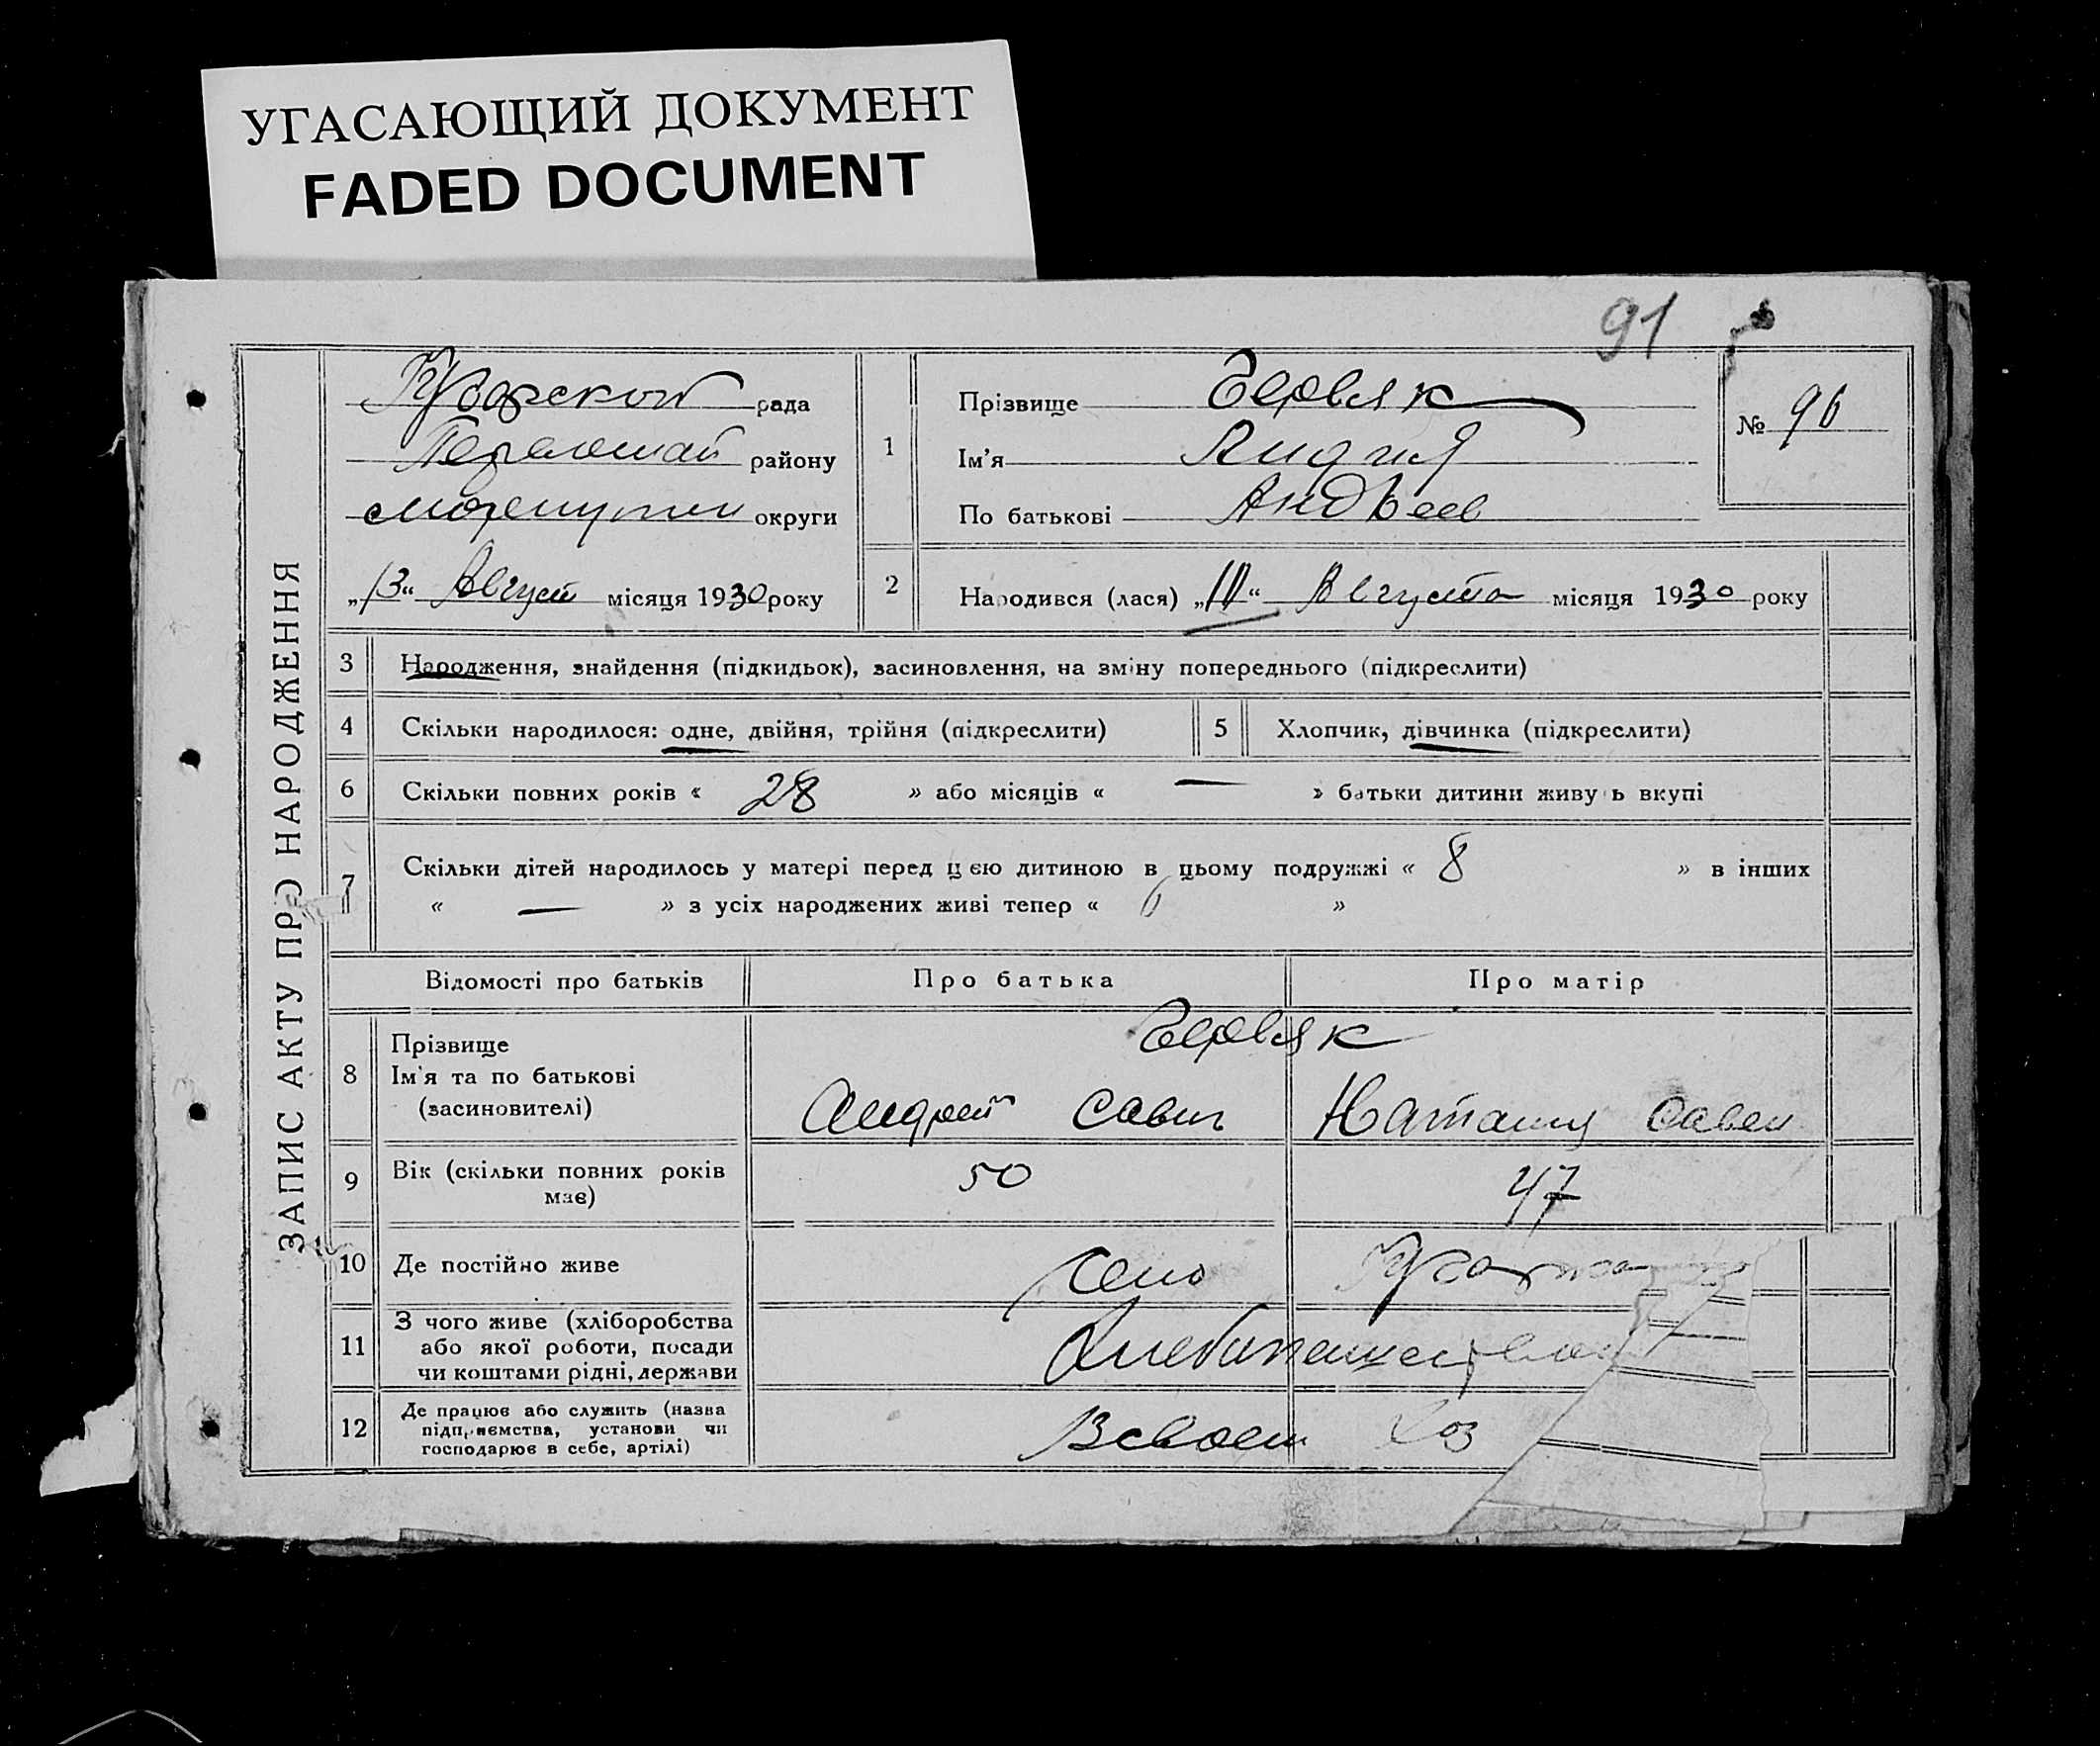 УГАСАЮЩИЙ ДОКУМЕНТ
FADED DOCUMENT
91
ЗАПИС АКТУ ПРО НАРОДЖЕННЯ
рада
району
округи
„13“ Август місяця 1930 року
1
Прізвище Червяк
Ім'я Лидия
По батькові Андреев
№ 96
2
Народився (лася) „10“ Августа місяця 1930 року
3 Народження, знайдення (підкидьок), засиновлення, на зміну попереднього (підкреслити)
4 Скільки народилося: одне, двійня, трійня (підкреслити)
5 Хлопчик, дівчинка (підкреслити)
6 Скільки повних років « 28 » або місяців « — » батьки дитини живуть вкупі
7 Скільки дітей народилось у матері перед цією дитиною в цьому подружжі « 8 » в інших
« — » з усіх народжених живі тепер « 6 »
Відомості про батьків Про батька Про матір
8 Прізвище
Ім'я та по батькові
(засиновителі)
Червяк
Андрей Савич Наталия Савел
9 Вік (скільки повних років
має)
50 47
10 Де постійно живе
Село
11 З чого живе (хліборобства
або якої роботи, посади
чи коштами рідні, держави
12 Де працює або служить (назва
підприємства, установи чи
господарює в себе, артілі)
В своем хоз